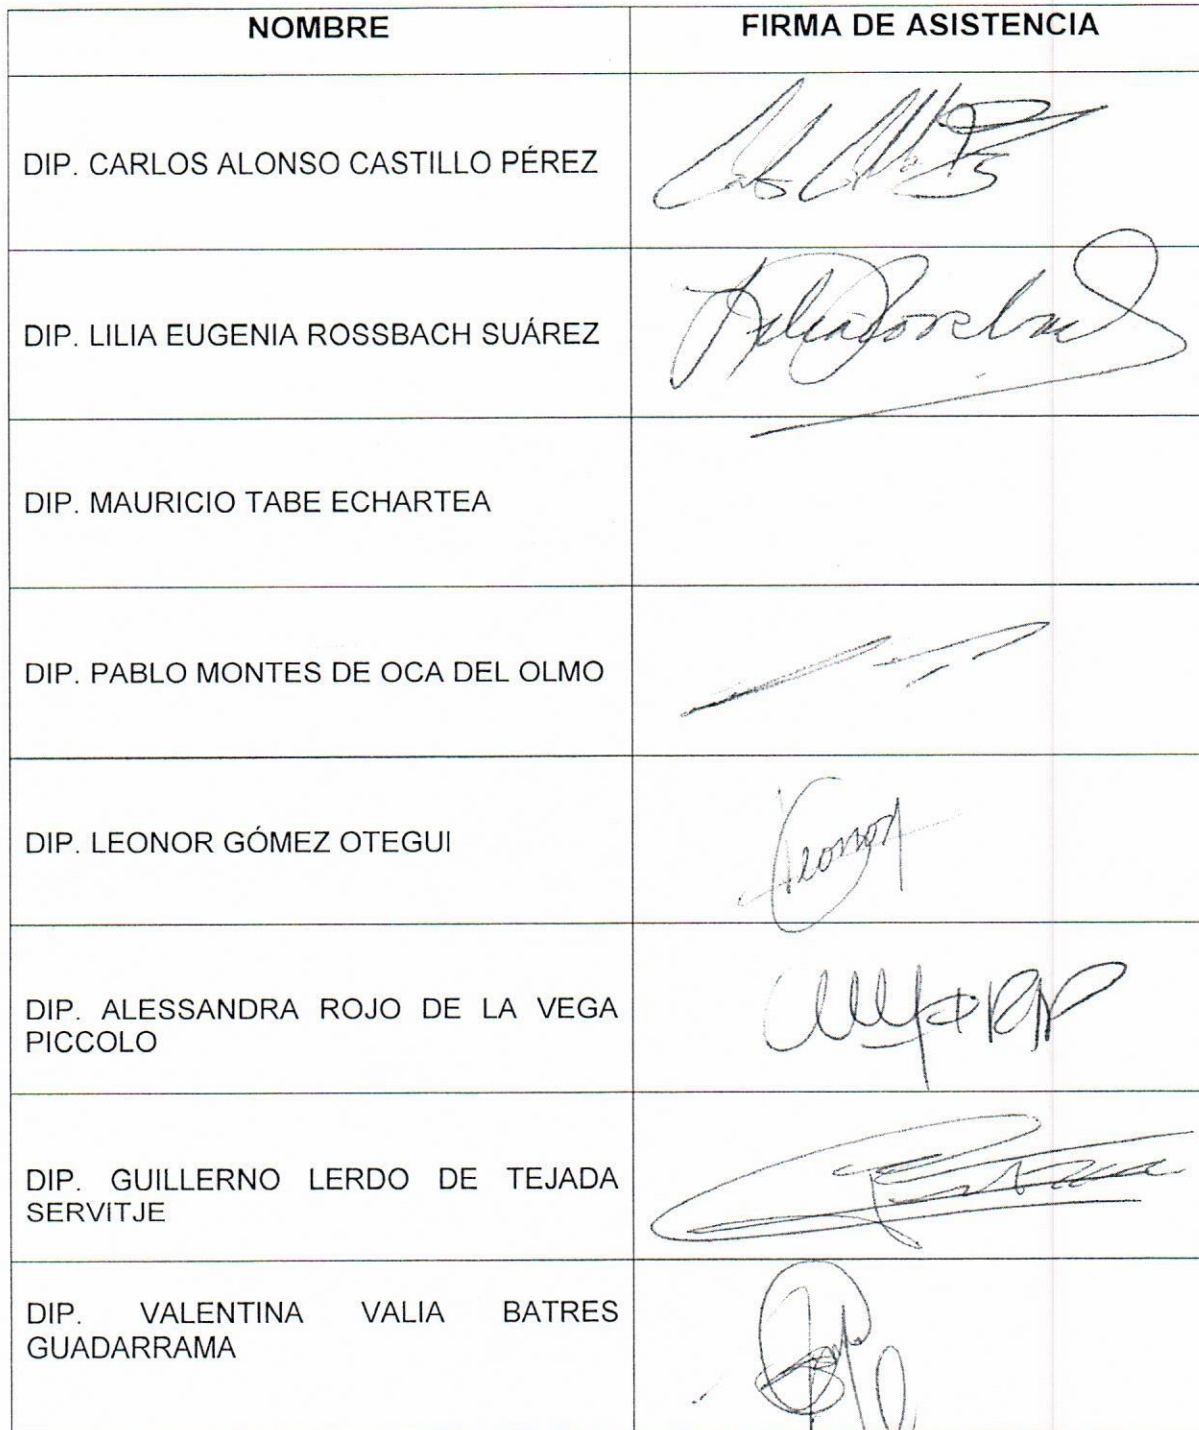 NOMBRE FIRMA DE ASISTENCIA
DIP. CARLOS ALONSO CASTILLO PÉREZ
DIP. LILIA EUGENIA ROSSBACH SUÁREZ
DIP. MAURICIO TABE ECHARTEA
DIP. PABLO MONTES DE OCA DEL OLMO
DIP. LEONOR GÓMEZ OTEGUI
Leonor
DIP. ALESSANDRA ROJO DE LA VEGA
PICCOLO
DIP. GUILLERNO LERDO DE TEJADA
SERVITJE
DIP. VALENTINA VALIA BATRES
GUADARRAMA